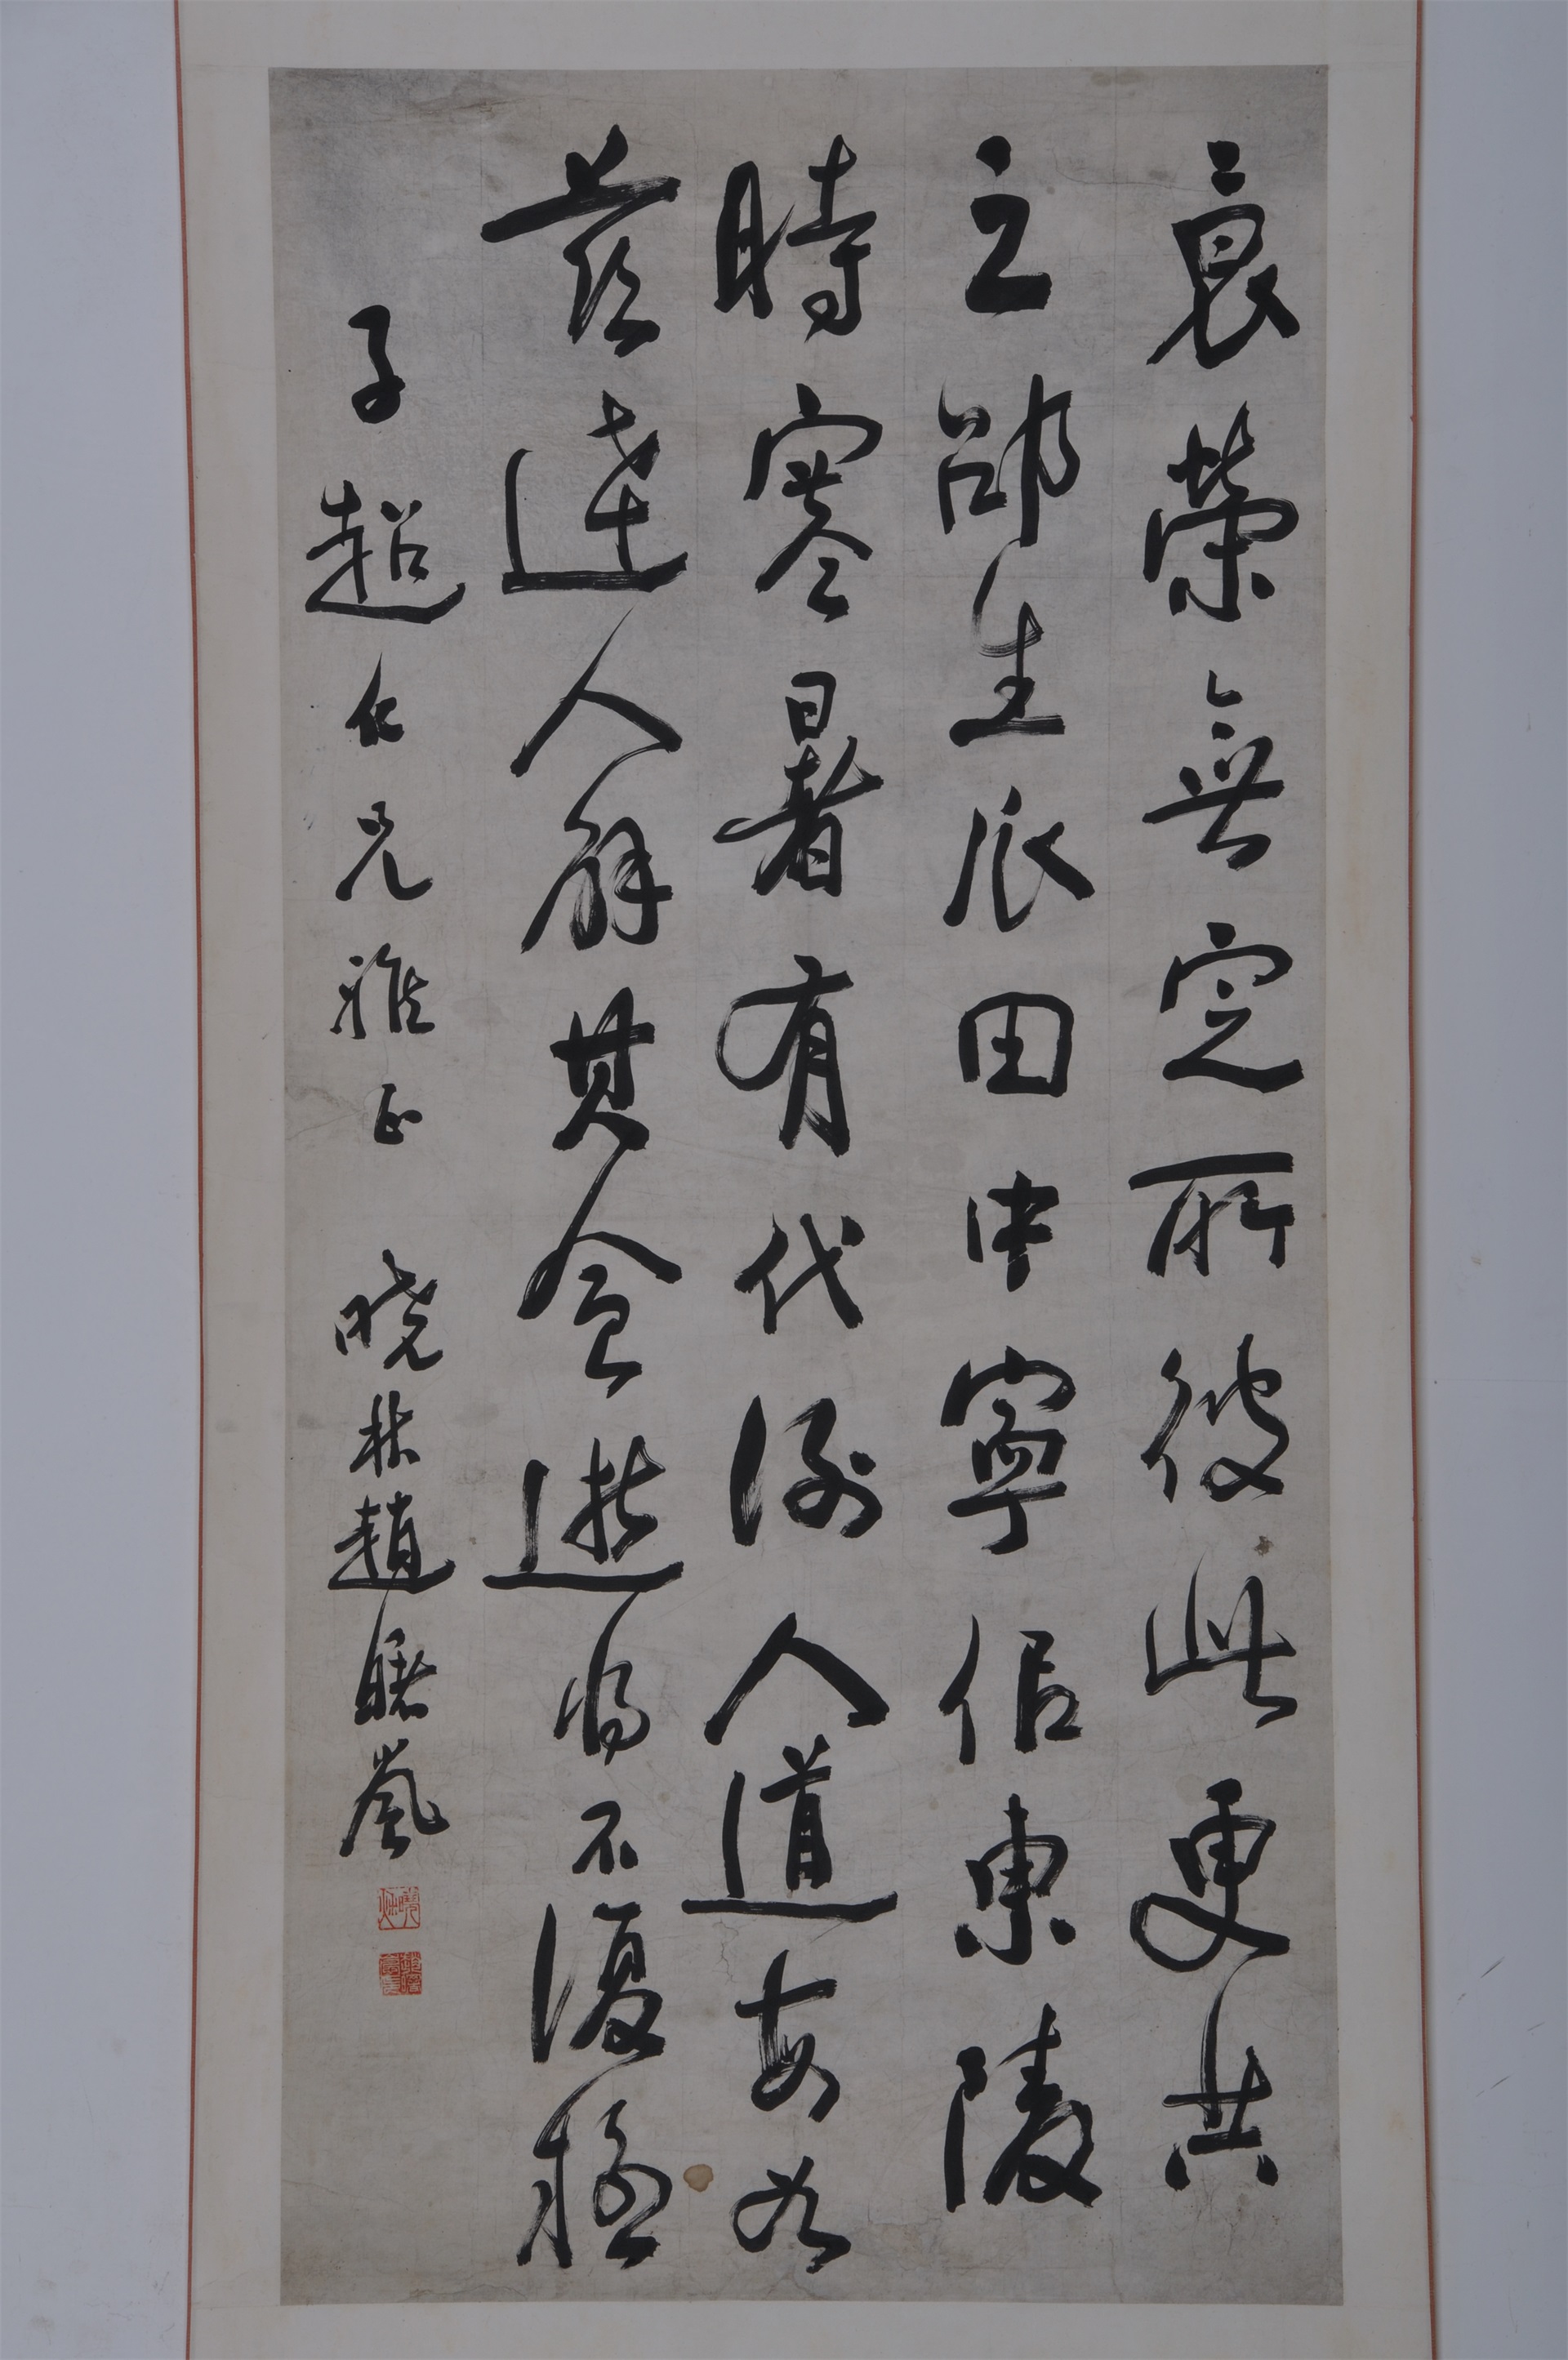 衰榮無定所彼此更共
之邵生瓜田中寧佀東陵
時寒暑有代謝人道每如
茲達人解其會逝將不復疑
子超仁兄雅正 曉林趙曙嵐